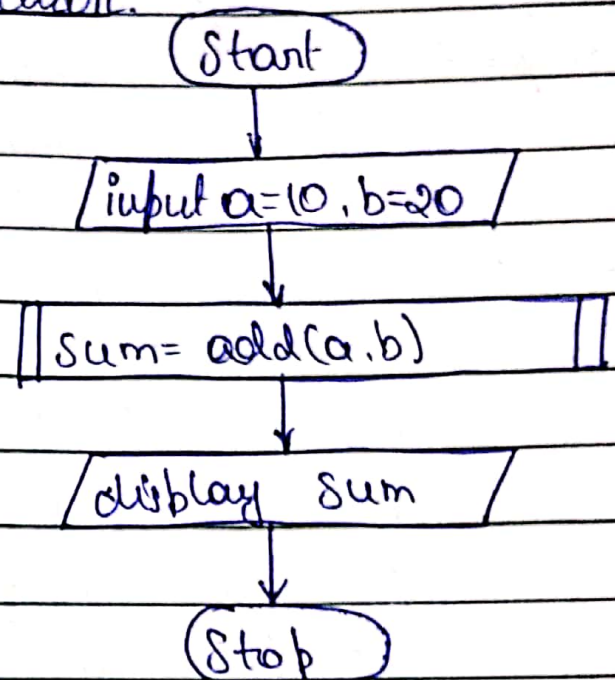 Start
input a=10, b=20
sum= add(a,b)
display sum
Stop